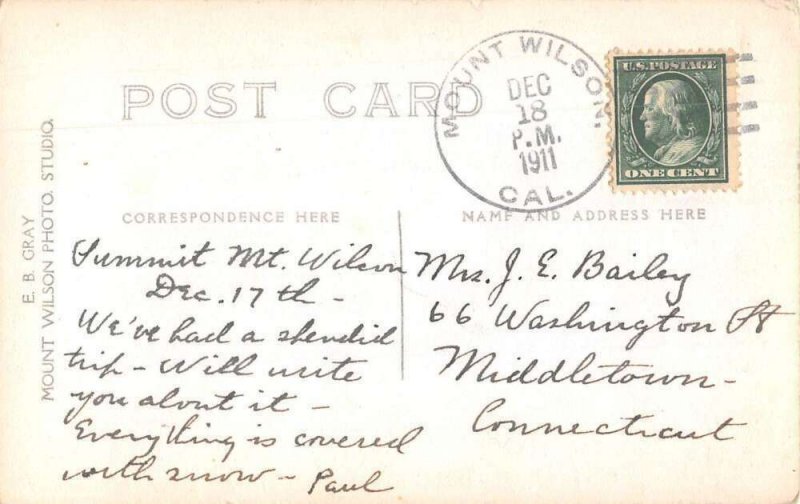 POST CARD
MOUNT WILSON,
DEC
18
P.M.
1911
CAL.
U.S. POSTAGE
ONE CENT
E. B. GRAY
MOUNT WILSON PHOTO. STUDIO.
CORRESPONDENCE HERE
NAME AND ADDRESS HERE
Summit Mt. Wilson
Dec. 17th -
We've had a splendid
trip - Will write
you about it -
Everything is covered
with snow - Paul
Mrs. J. E. Bailey
66 Washington St
Middletown -
Connecticut